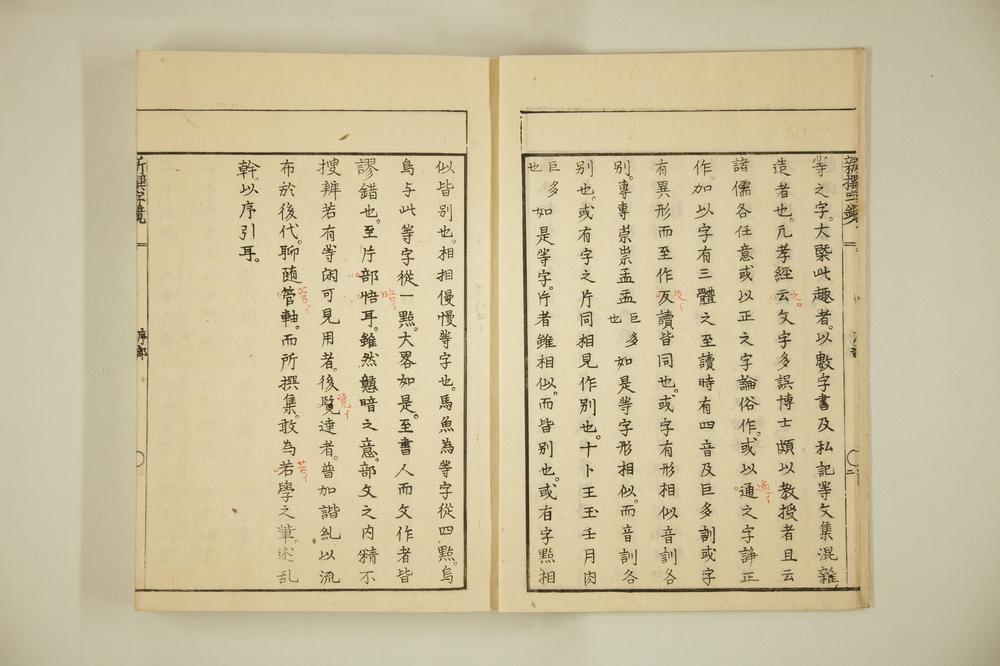 等之字。大槩此趣者。以數字書及私記等文集混雜
造者也。凢孝經云文字多誤博士頗以教授者且云
諸儒各任意或以正之字論俗作。或以通之字諍正
作。加以字有三體之至讀時有四音及巨多訓或字
有異形而至作叐讀皆同也。或字有形相似音訓各
別。專專崇祟孟盂巨多也如是等字形相似。而音訓各
別也。或有字之片同相見作別也。十卜王玉壬月肉
巨多也如是等字。片者雖相似。而皆別也。或有字點相
似皆別也。相相慢慢等字也。馬魚為等字從四點。烏
鳥与此等字從一點。大畧如是。至書人而文作者皆
謬錯也。至片部悟耳。雖然愚暗之意。部文之内精不
搜辨若有等閑可見用者。後覧達者。普加諧糺以流
布於後代。聊随管軸。而所撰集。敢為若學之輩。述乱
幹。以序引耳。
新撰字鏡